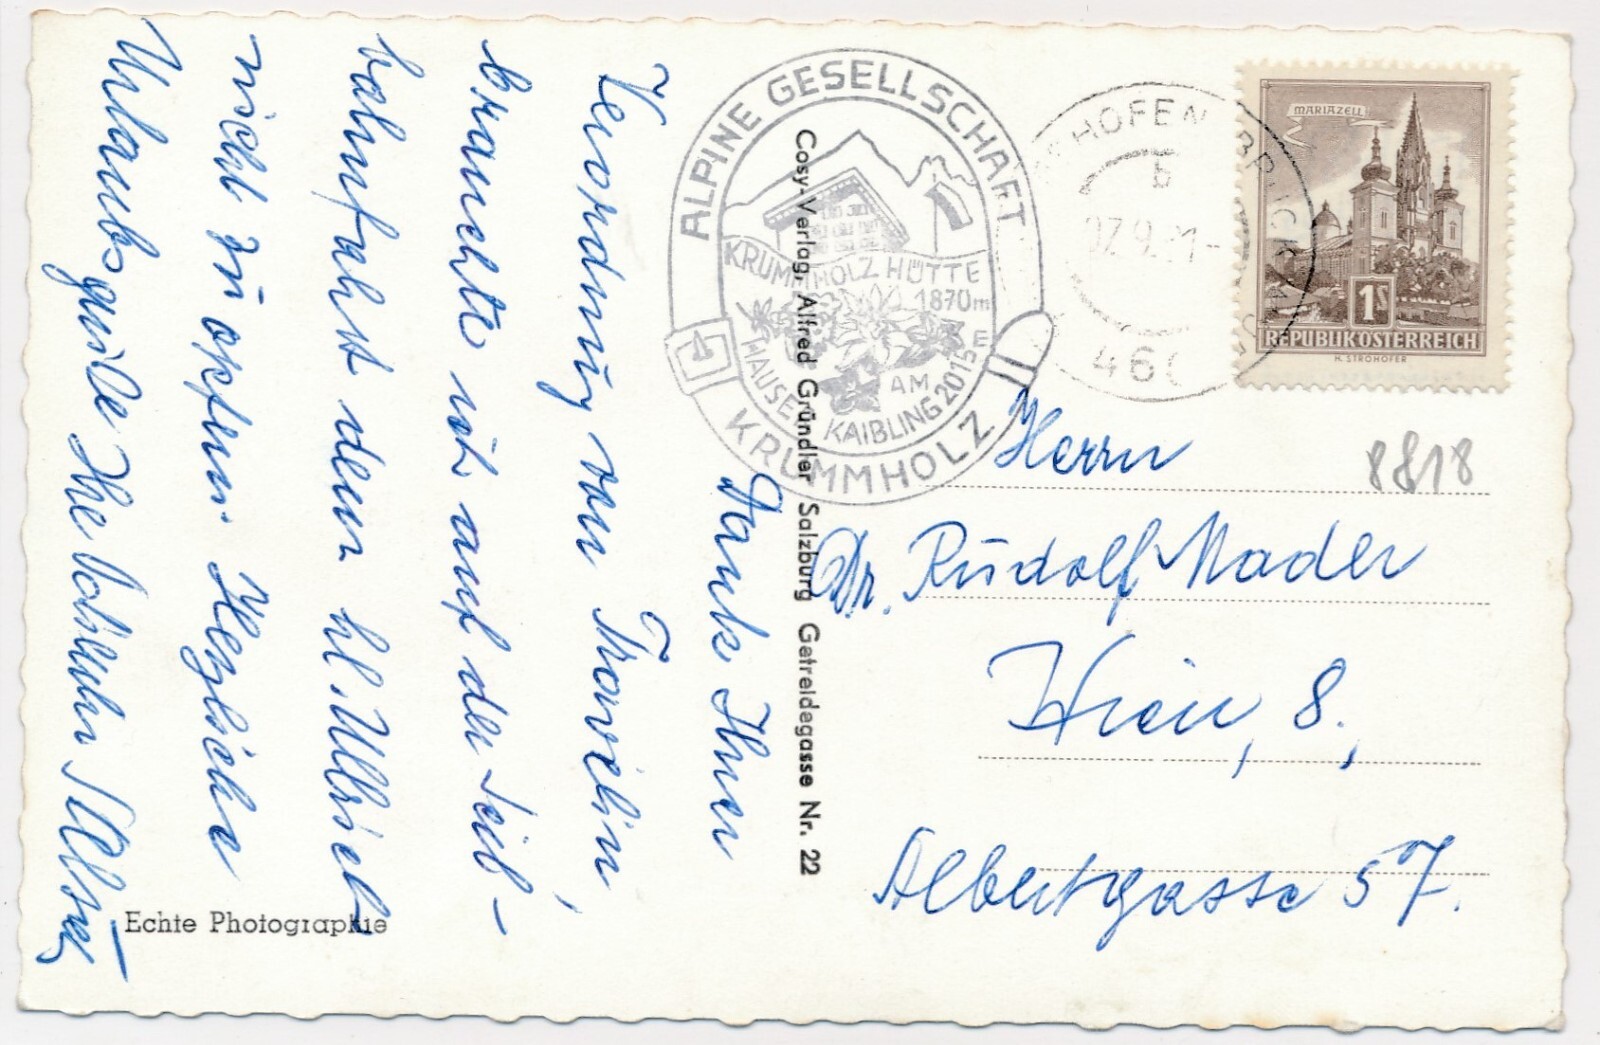 Dank Ihrer
Verordnung von Travelin,
brauchte ich auf der Seil-
bahnfahrt dem hl. Ullrich
nicht zu opfern. Herzliche
Urlaubsgrüße Ihre
Echte Photographie
Cosy-Verlag, Alfred Gründler Salzburg Getreidegasse Nr. 22
ALPINE GESELLSCHAFT
KRUMMHOLZ HÜTTE
1870m
HAUSER
AM
KAIBLING 2015
KRUMMHOLZ
HOFEN
b
MARIAZELL
1S
REPUBLIK ÖSTERREICH
H. STROHOFER
8818
Herrn
Dr. Rudolf Mader
Wien, 8.,
Albertgasse 57.